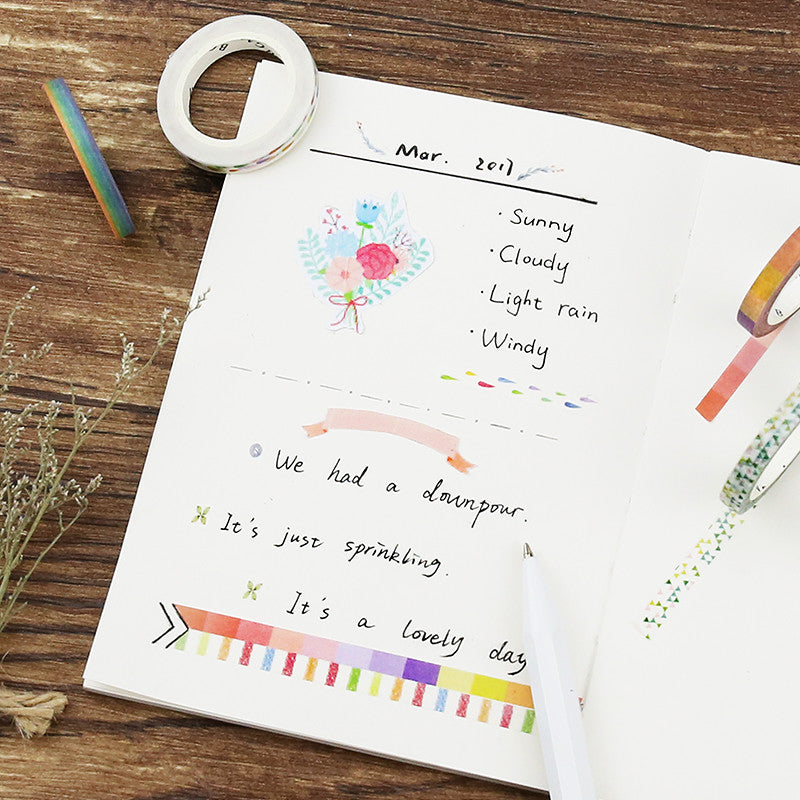 Mar. 2017
· Sunny
· Cloudy
· Light rain
· Windy
We had a downpour.
It's just sprinkling.
It's a lovely day